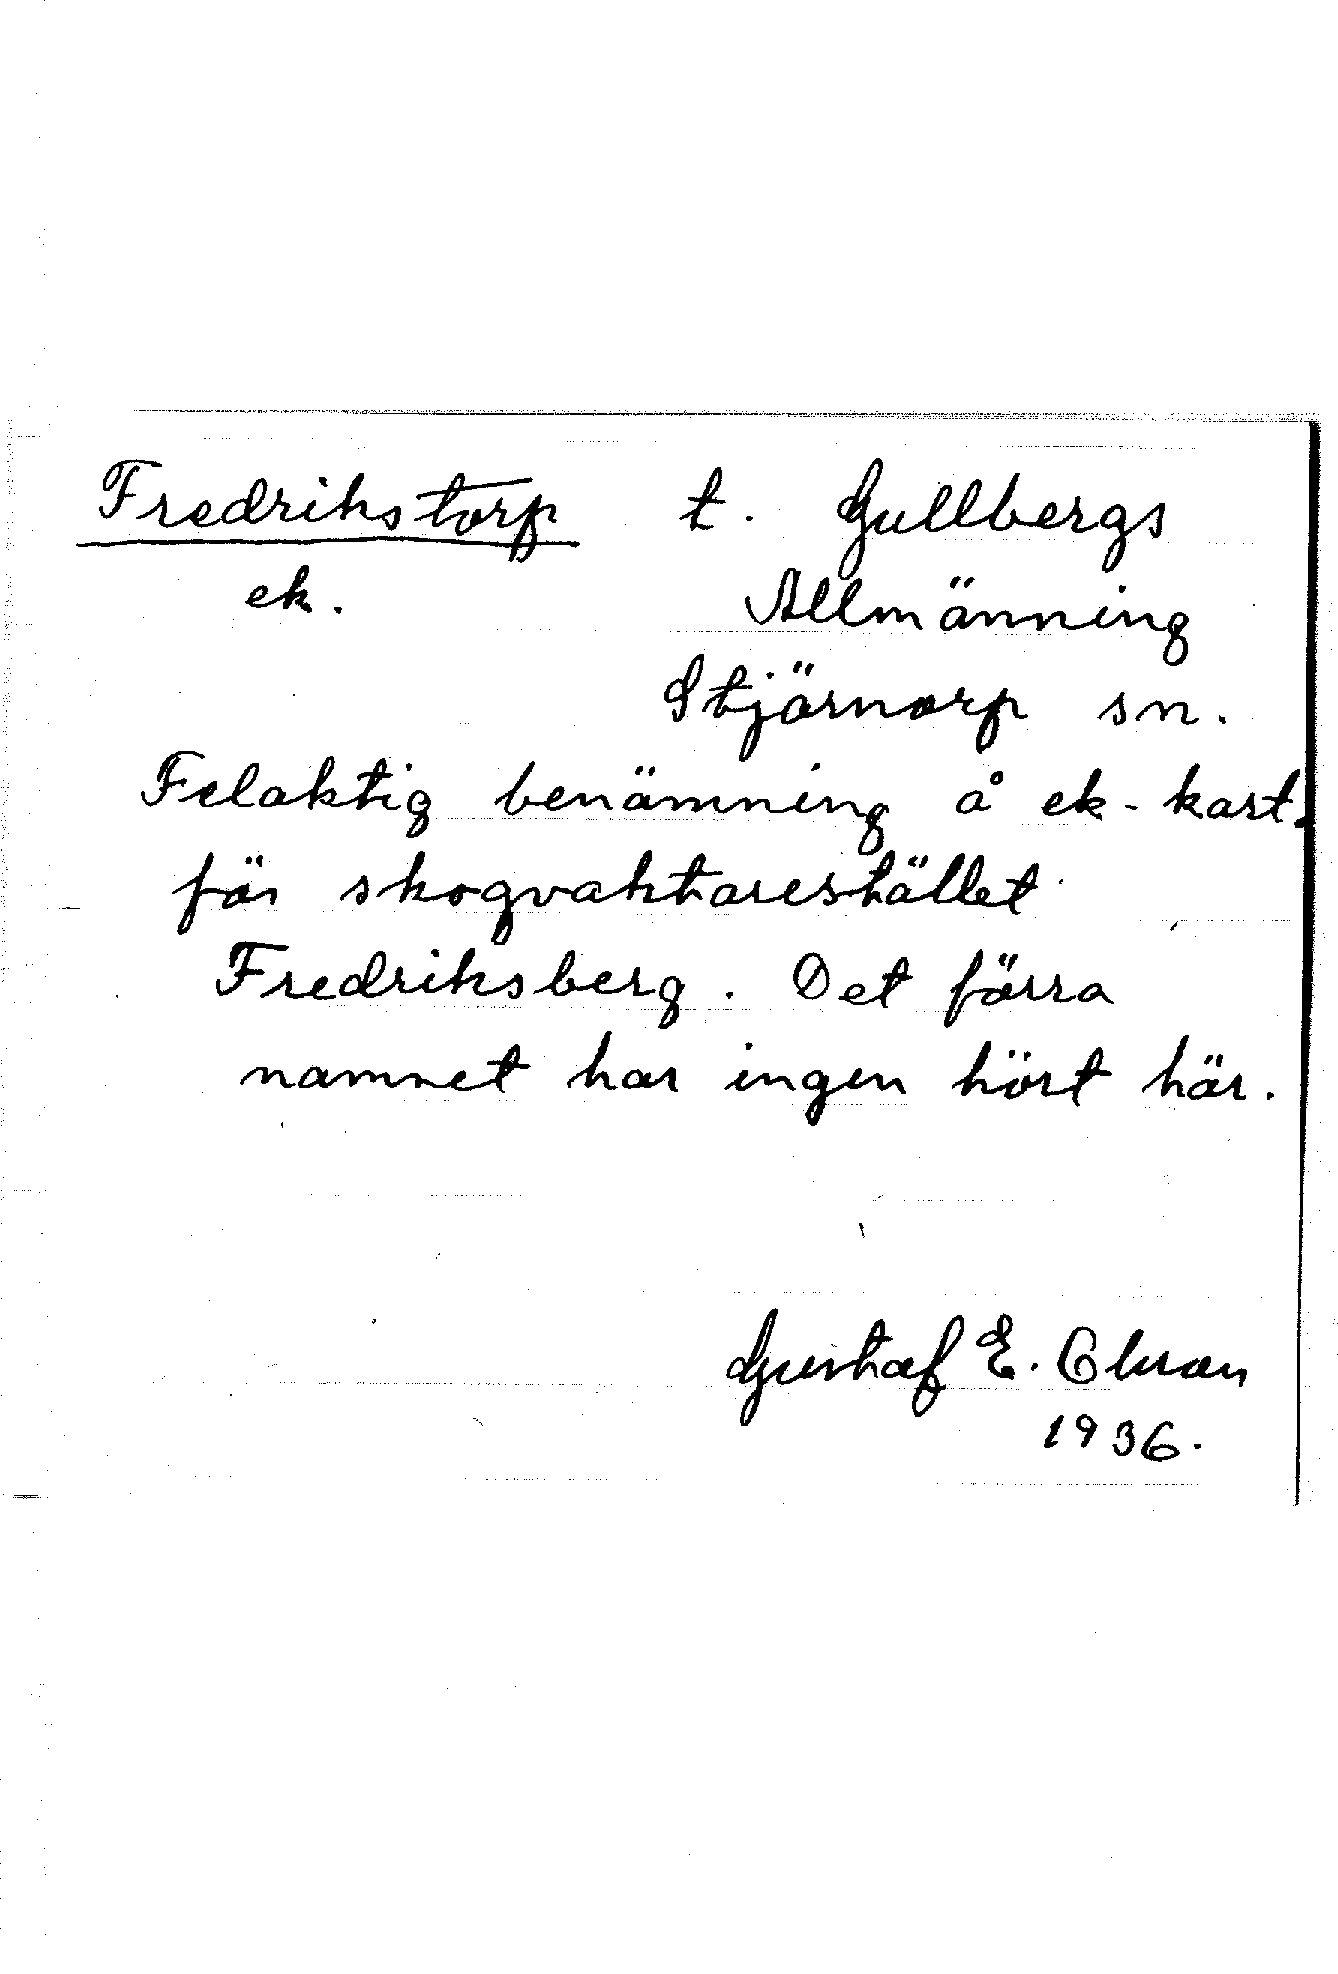 Fredrikstorp t. Gullbergs
ek. Allmänning
Stjärnorp sn.
Felaktig benämning å ek-kart.
för skogvaktareshället
Fredriksberg. Det förra
namnet har ingen hört här.
Gustaf E. Olsson
1936.